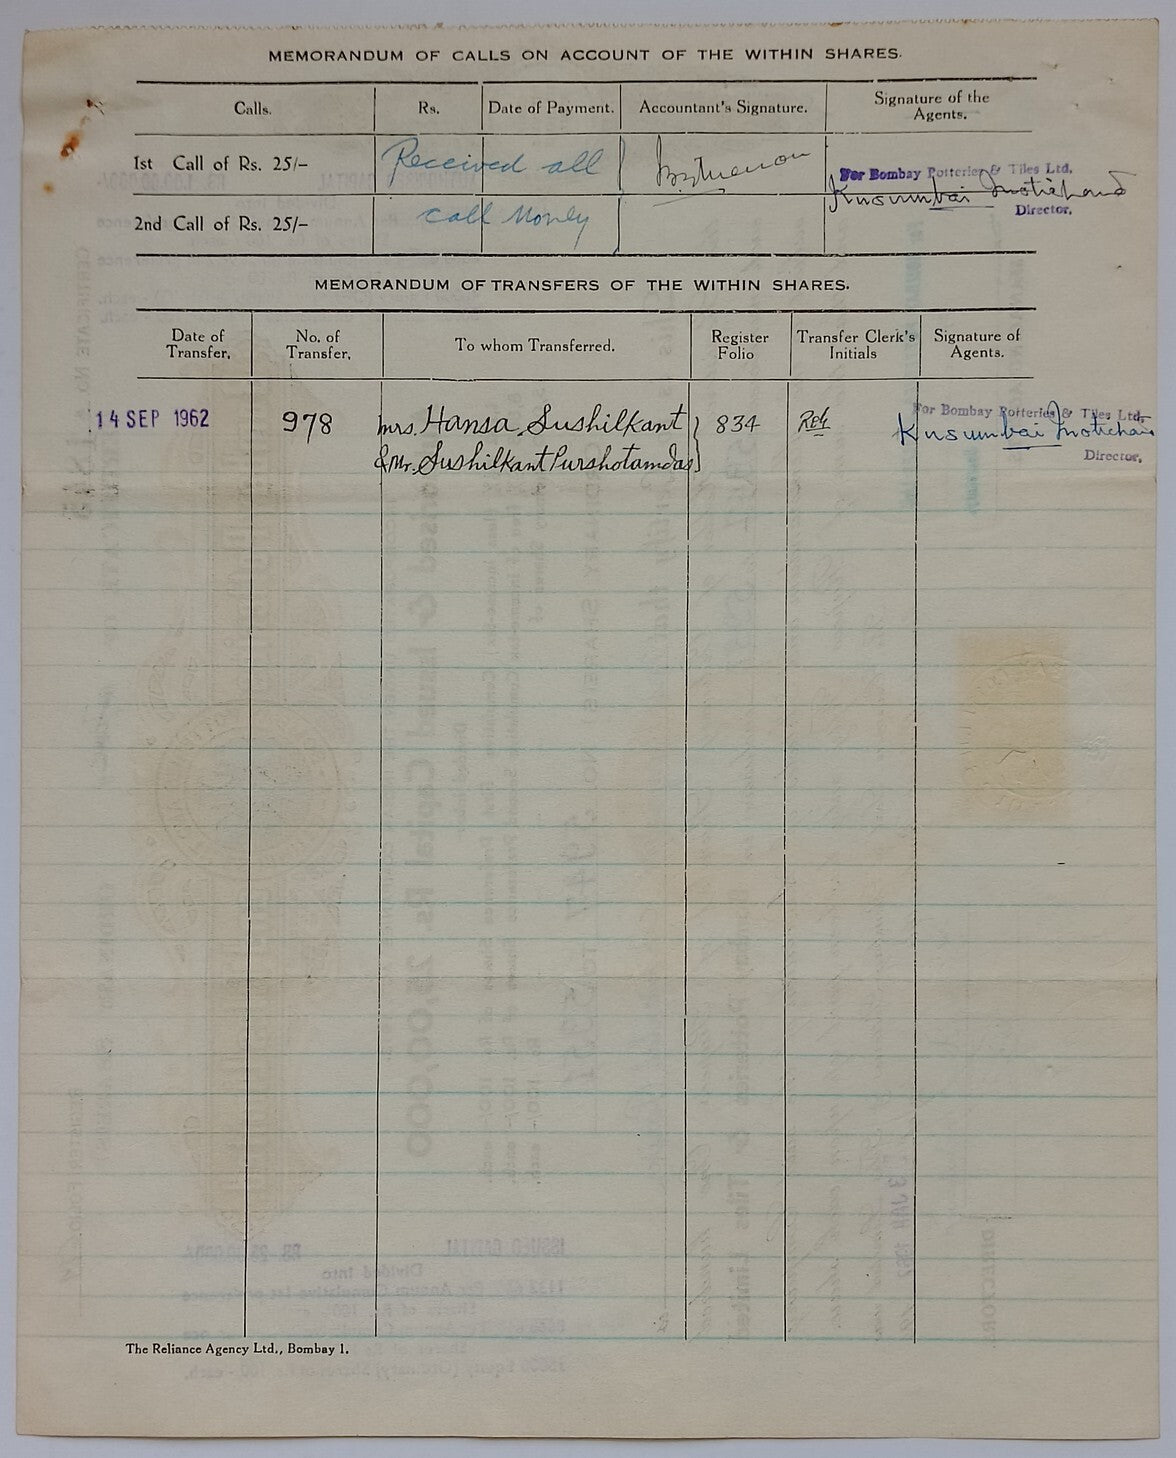 MEMORANDUM OF CALLS ON ACCOUNT OF THE WITHIN SHARES.
Calls. Rs. Date of Payment. Accountant's Signature. Signature of the Agents.
1st Call of Rs. 25/- Received all
For Bombay Potteries & Tiles Ltd.
Kusumbai Motichand
Director.
2nd Call of Rs. 25/- Call Money
MEMORANDUM OF TRANSFERS OF THE WITHIN SHARES.
Date of Transfer. No. of Transfer. To whom Transferred. Register Folio Transfer Clerk's Initials Signature of Agents.
14 SEP 1962 978 Mrs. Hansa Sushilkant 834
& Mr. Sushilkant Purshotamdas
For Bombay Potteries & Tiles Ltd.
Kusumbai Motichand
Director.
The Reliance Agency Ltd., Bombay 1.